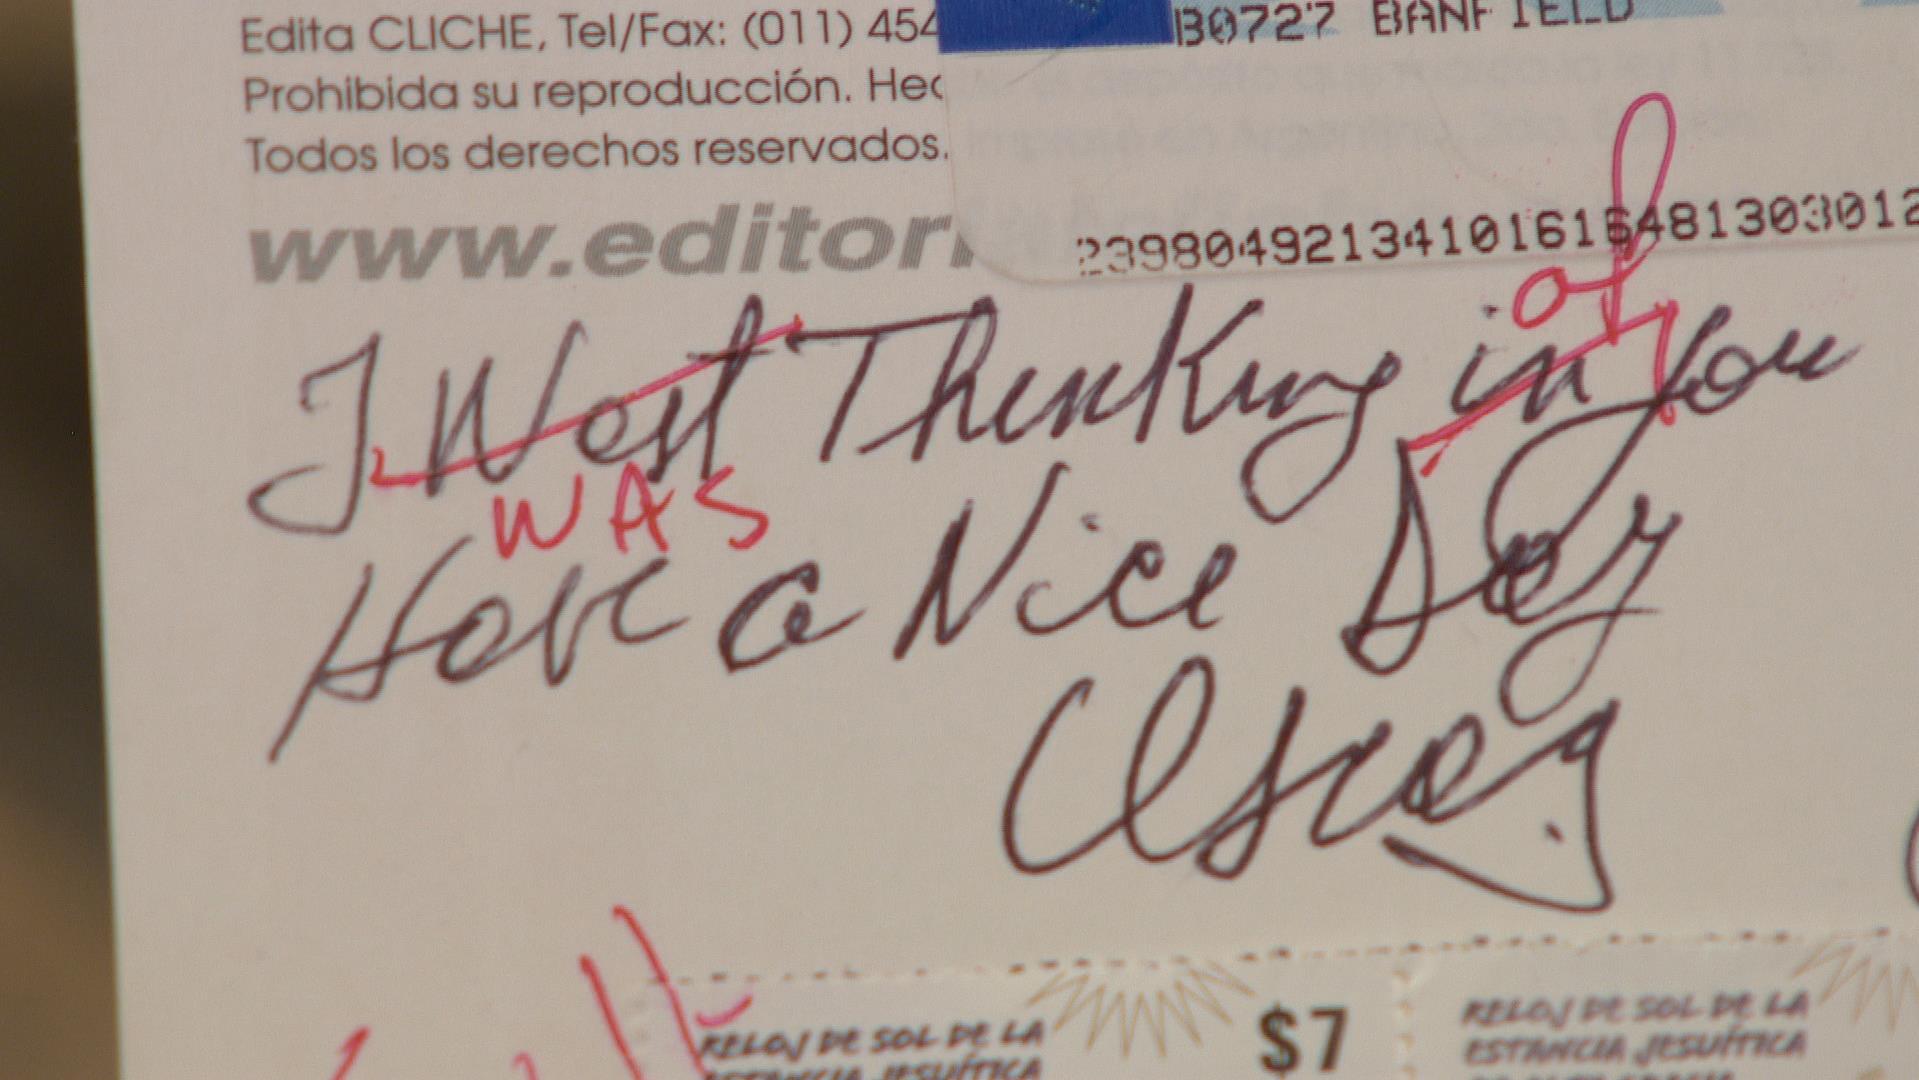 Edita CLICHE, Tel/Fax: (011) 454
B0727 BANFIELD
Prohibida su reproducción. Hec
Todos los derechos reservados.
www.editori
2398049213410161648130301
of
I West Thinking in you
WAS
Have a Nice Day
Oscar
$7
RELOJ DE SOL DE LA
ESTANCIA JESUÍTICA
RELOJ DE SOL DE LA
ESTANCIA JESUÍTICA